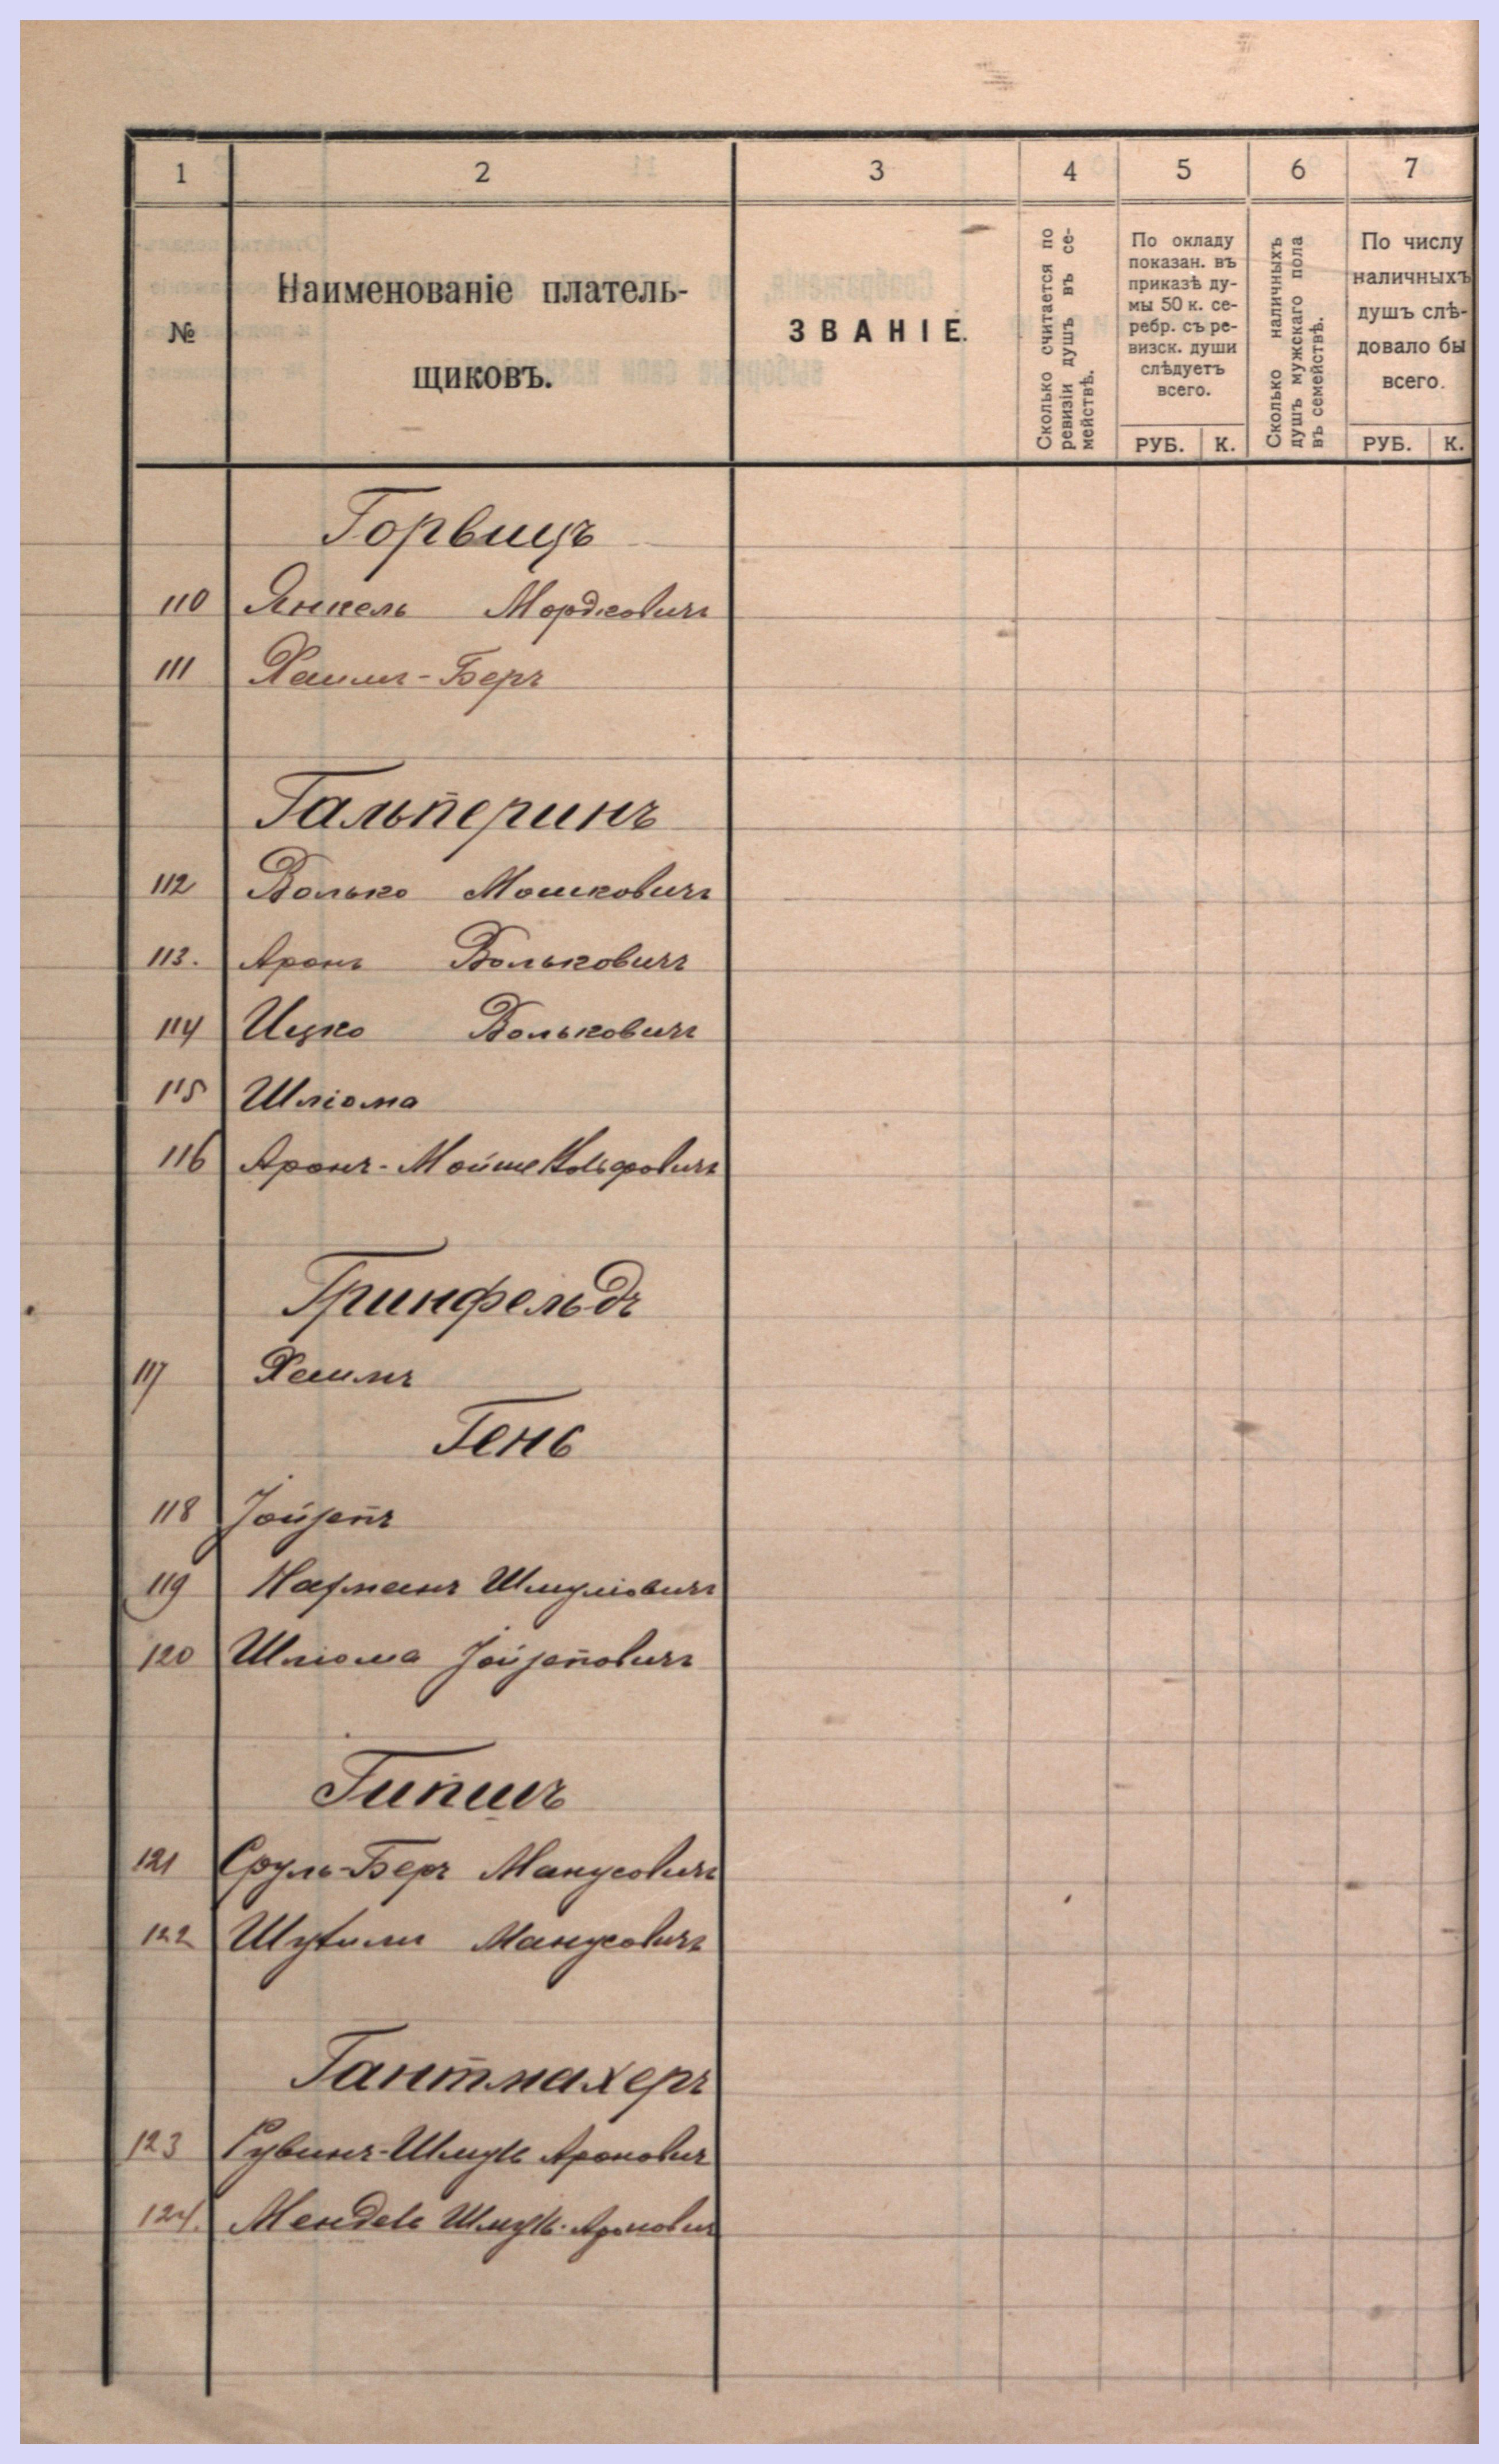 1 2 3 4 5 6 7
№
Наименованіе платель-
щиковъ.
ЗВАНІЕ.
Сколько считается по
ревизіи душъ въ се-
мействѣ.
По окладу
показан. въ
приказѣ ду-
мы 50 к. се-
ребр. съ ре-
визск. души
слѣдуетъ
всего.
РУБ. К.
Сколько наличныхъ
душъ мужскаго пола
въ семействѣ.
По числу
наличныхъ
душъ слѣ-
довало бы
всего.
РУБ. К.
Горвицъ
110 Янкель Мордковичъ
111 Хаимъ-Беръ
Гальперинъ
112 Волько Мошковичъ
113. Аронъ Вольковичъ
114 Ицко Вольковичъ
115 Шліома
116 Аронъ-Мойше Вольфовичъ
Гринфельдъ
117 Хаимъ
Гень
118 Іойзепъ
119 Нахманъ Шмуліовичъ
120 Шліома Іойзеповичъ
Гипшъ
121 Сруль-Беръ Манусовичъ
122 Манусовичъ
Гантмахеръ
123 Рувинъ-Шмуль Ароновичъ
124. Мендель Шмуль-Ароновичъ